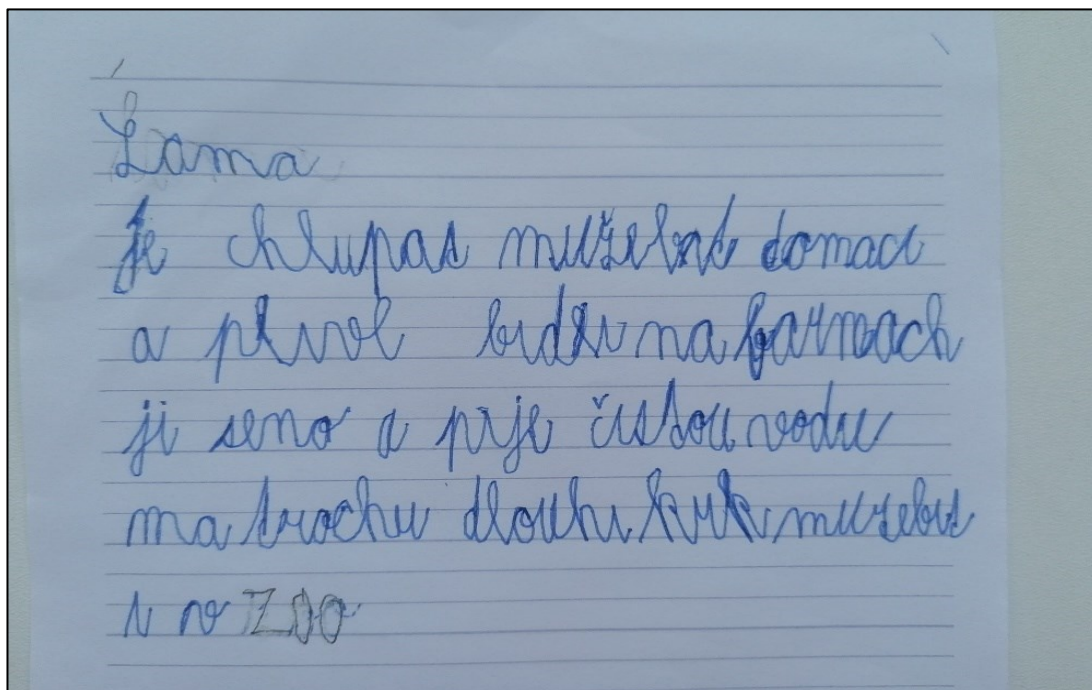 Lama
je chlupas mužebit domaci
a plivol bidli na farmach
ji seno a pije čistou vodu
ma trochu dlouhi krk muzebit
i v ZOO